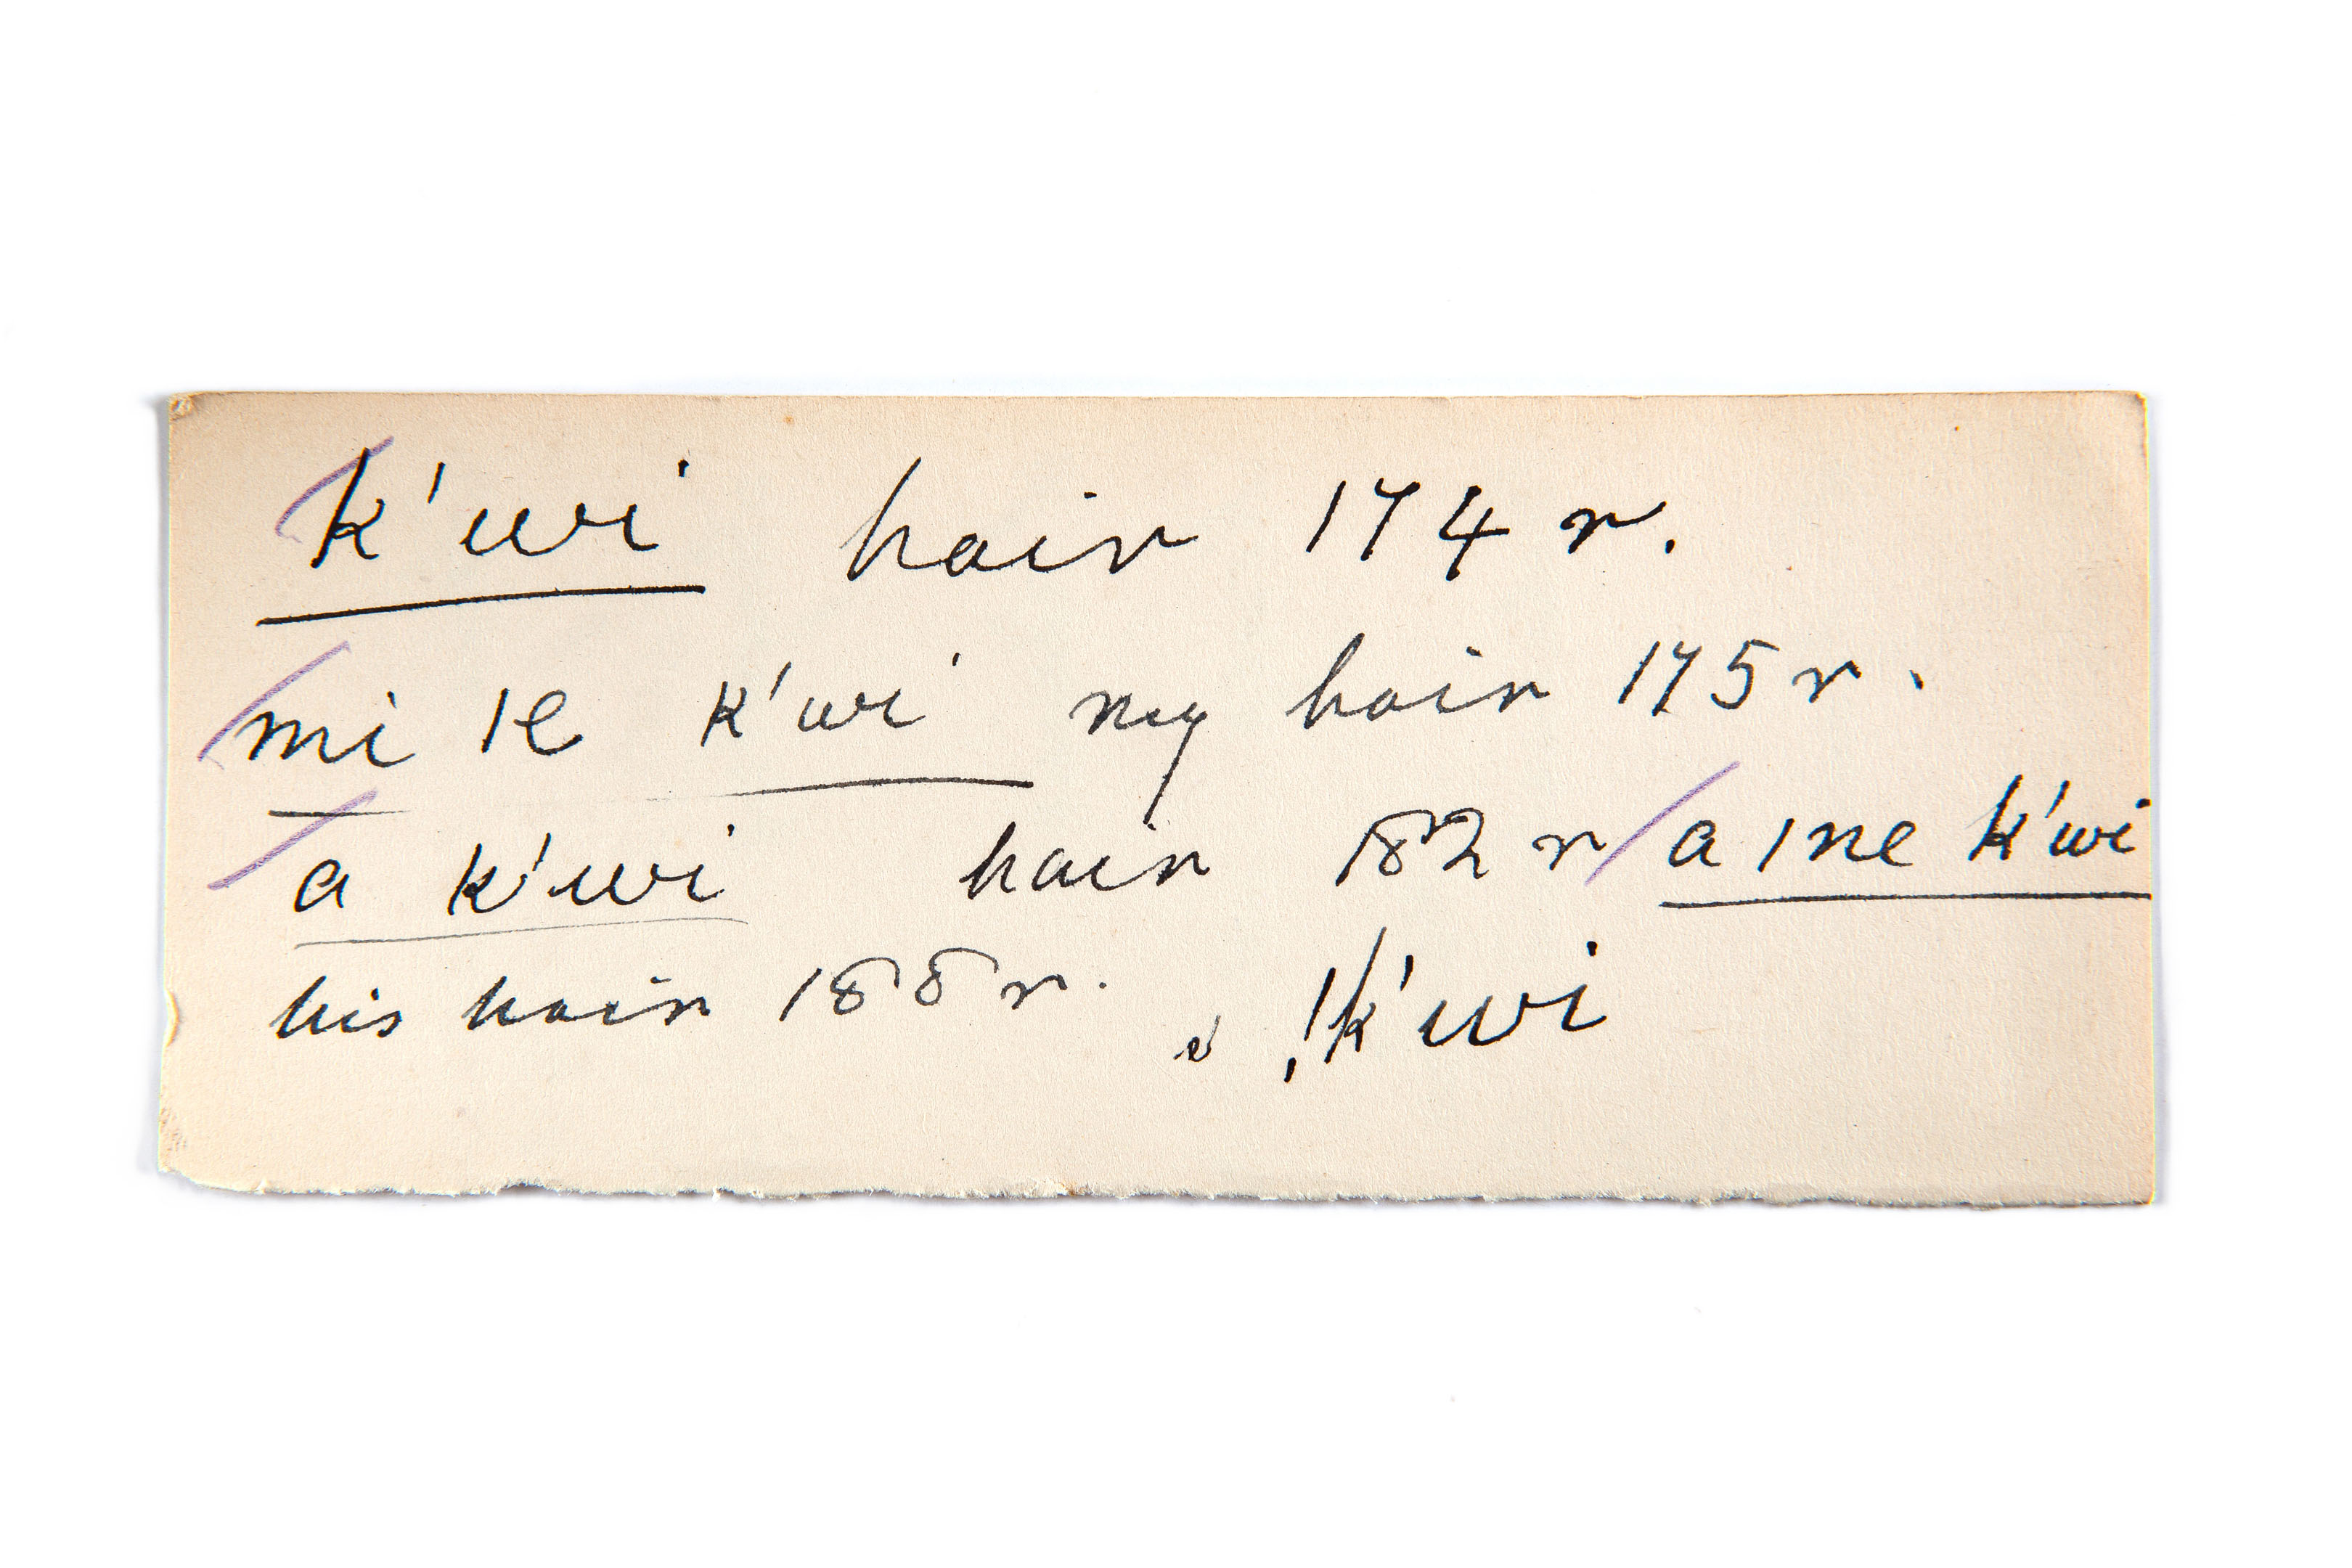 k'wi hair 174 r.
mi |e k'wi my hair 175 r.
a k'wi hair 182 r a |ne k'wi
his hair 188 r. !k'wi